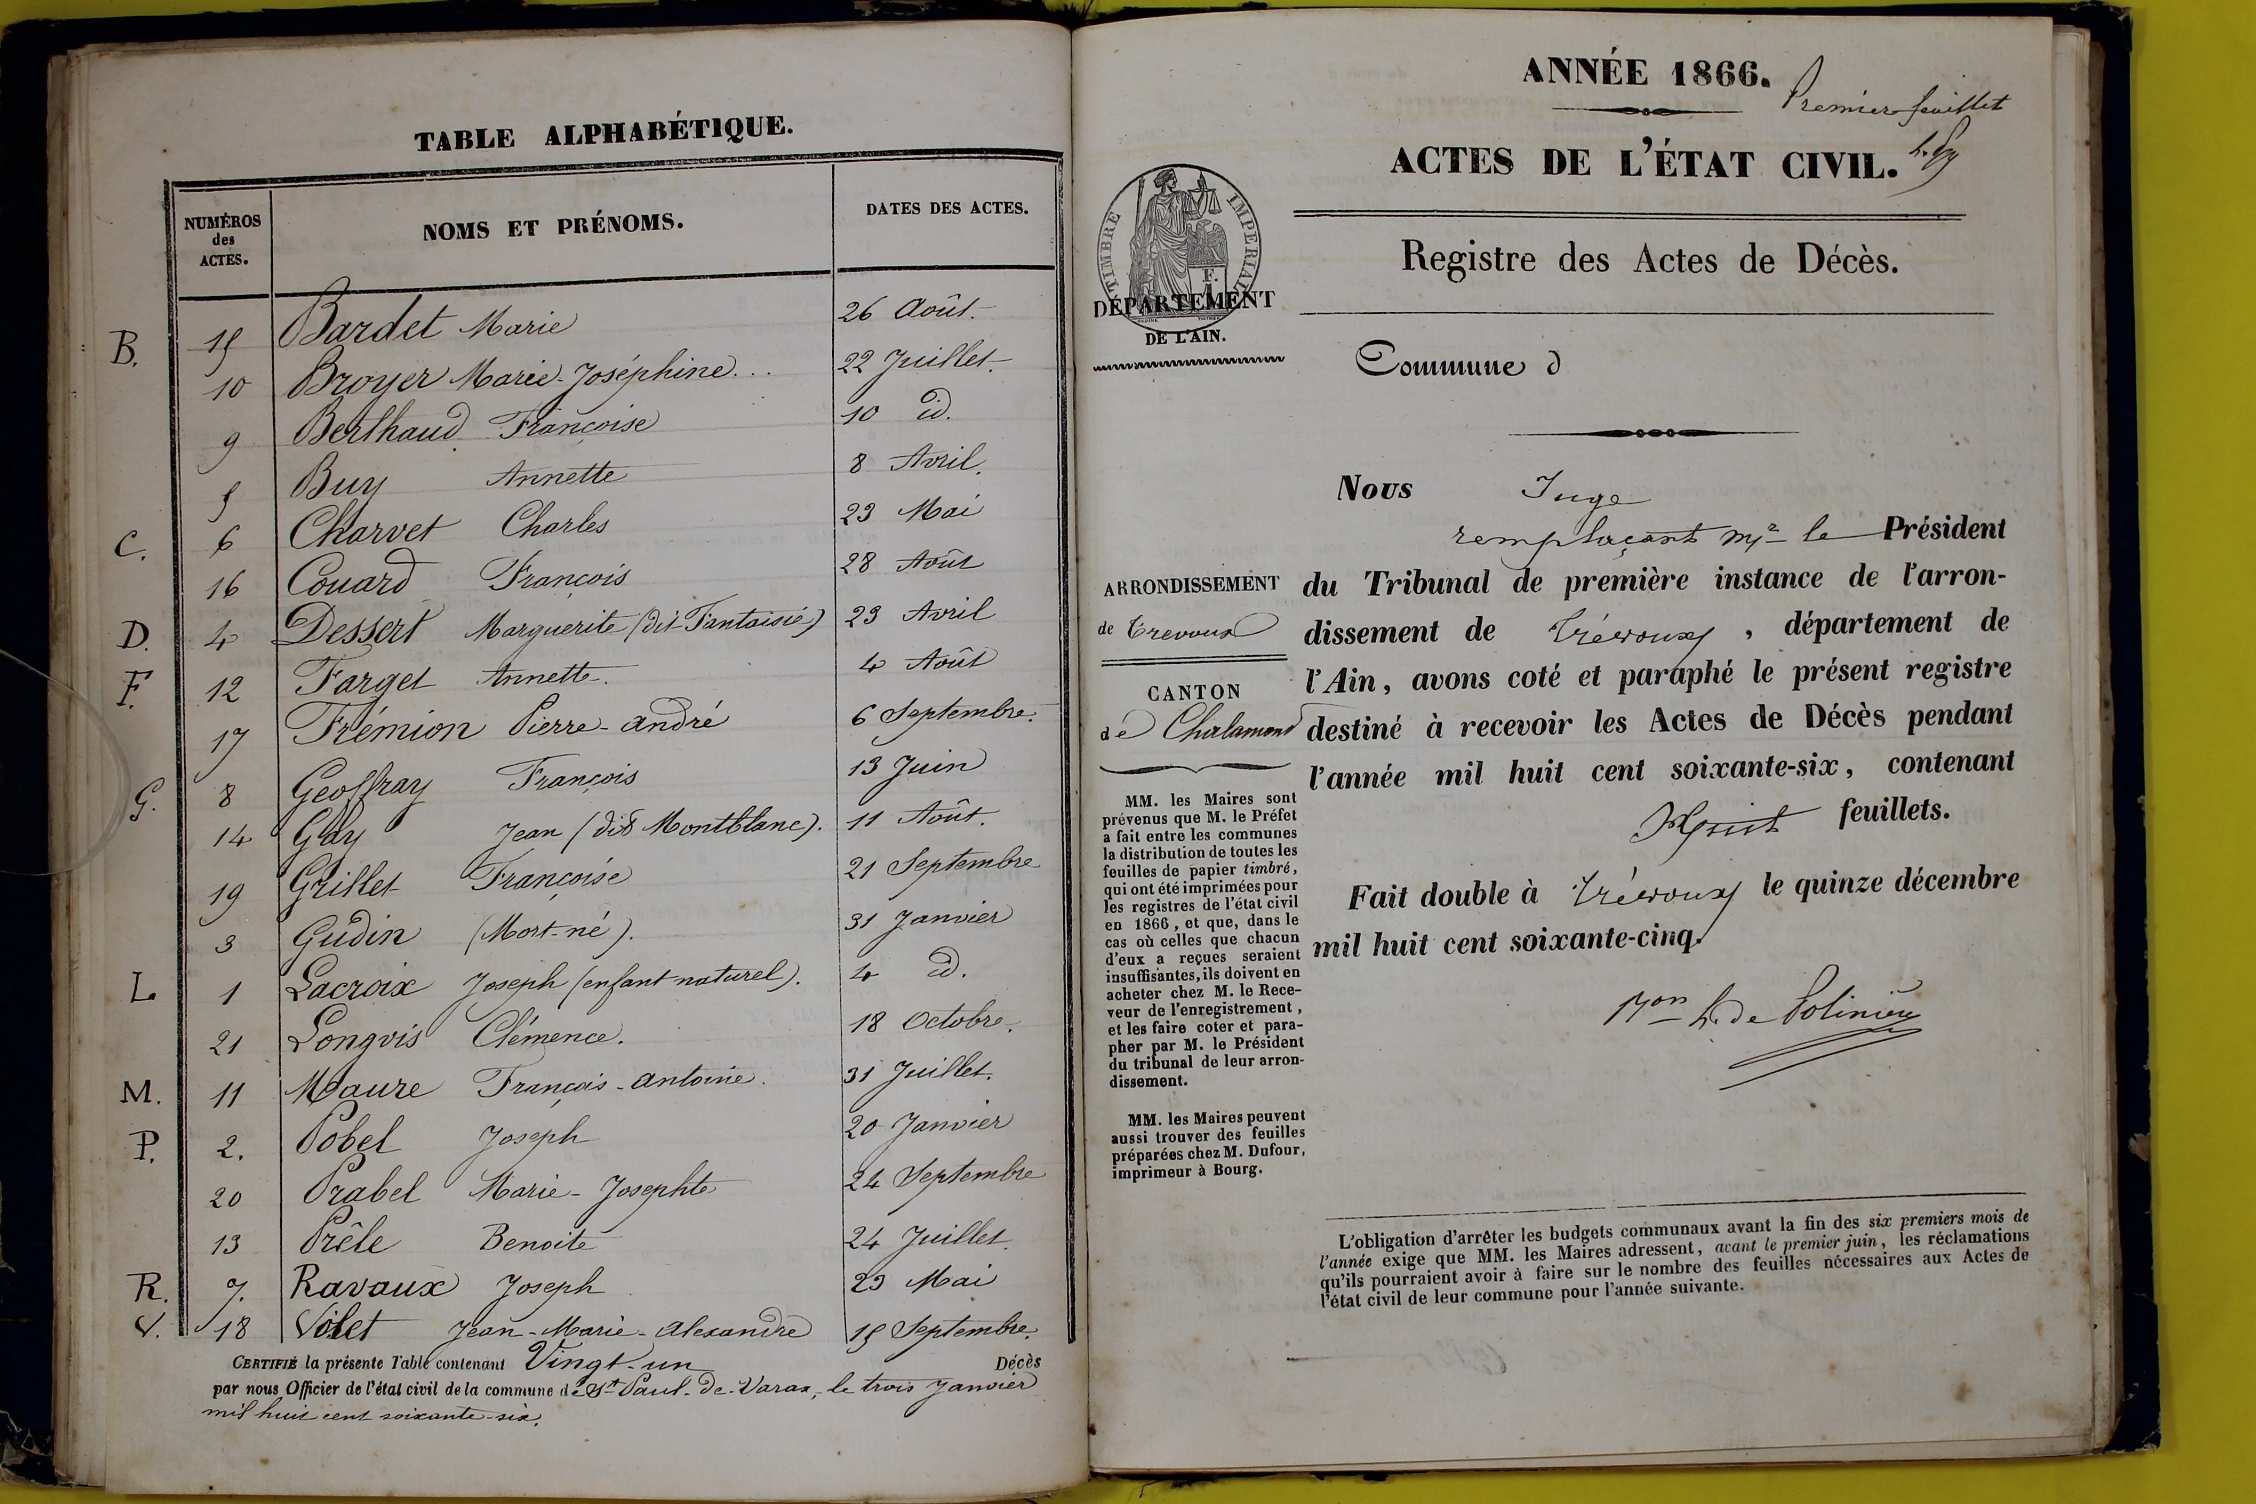 TABLE ALPHABÉTIQUE.
NUMÉROS des ACTES. NOMS ET PRÉNOMS. DATES DES ACTES.
B. 15 Bardet Marie 26 Août.
10 Broyer Marie-Joséphine... 22 Juillet.
9 Berthaud Françoise 10 id.
5 Buy Annette 8 Avril.
C. 6 Charvet Charles 23 Mai
16 Couard François 28 Août
D. 4 Dessert Marguerite (dit Fantaisie) 23 Avril
F. 12 Farget Annette. 4 Août
17 Frémion Pierre-André 6 Septembre.
G. 8 Geoffray François 13 Juin
14 Gay Jean (dit Montblanc). 11 Août.
19 Grillet Françoise 21 Septembre
3 Gudin (Mort-né). 31 Janvier
L 1 Lacroix Joseph (enfant naturel). 4 id.
21 Longvis Clémence. 18 Octobre.
M. 11 Maure François-Antoine. 31 Juillet.
P. 2. Pobel Joseph 20 Janvier
20 Prabel Marie-Josephte 24 Septembre
13 Prêle Benoite 24 Juillet.
R. 7. Ravaux Joseph 23 Mai
V. 18 Volet Jean-Marie-Alexandre 15 Septembre.
CERTIFIÉ la présente Table contenant Vingt-un Décès
par nous Officier de l'état civil de la commune de St Paul-de-Varax, le trois Janvier
mil huit cent soixante-six.
ANNÉE 1866.
Premier feuillet
ACTES DE L'ÉTAT CIVIL.
TIMBRE IMPERIAL
Registre des Actes de Décès.
DÉPARTEMENT
DE L'AIN.
Commune d
Nous Juge
remplaçant Mr le Président
du Tribunal de première instance de l'arron-
dissement de Trévoux, département de
l'Ain, avons coté et paraphé le présent registre
destiné à recevoir les Actes de Décès pendant
l'année mil huit cent soixante-six, contenant
Huit feuillets.
Fait double à Trévoux le quinze décembre
mil huit cent soixante-cinq.
ARRONDISSEMENT
de Trevoux
CANTON
de Chalamont
MM. les Maires sont
prévenus que M. le Préfet
a fait entre les communes
la distribution de toutes les
feuilles de papier timbré,
qui ont été imprimées pour
les registres de l'état civil
en 1866, et que, dans le
cas où celles que chacun
d'eux a reçues seraient
insuffisantes, ils doivent en
acheter chez M. le Rece-
veur de l'enregistrement,
et les faire coter et para-
pher par M. le Président
du tribunal de leur arron-
dissement.
MM. les Maires peuvent
aussi trouver des feuilles
préparées chez M. Dufour,
imprimeur à Bourg.
L'obligation d'arrêter les budgets communaux avant la fin des six premiers mois de
l'année exige que MM. les Maires adressent, avant le premier juin, les réclamations
qu'ils pourraient avoir à faire sur le nombre des feuilles nécessaires aux Actes de
l'état civil de leur commune pour l'année suivante.